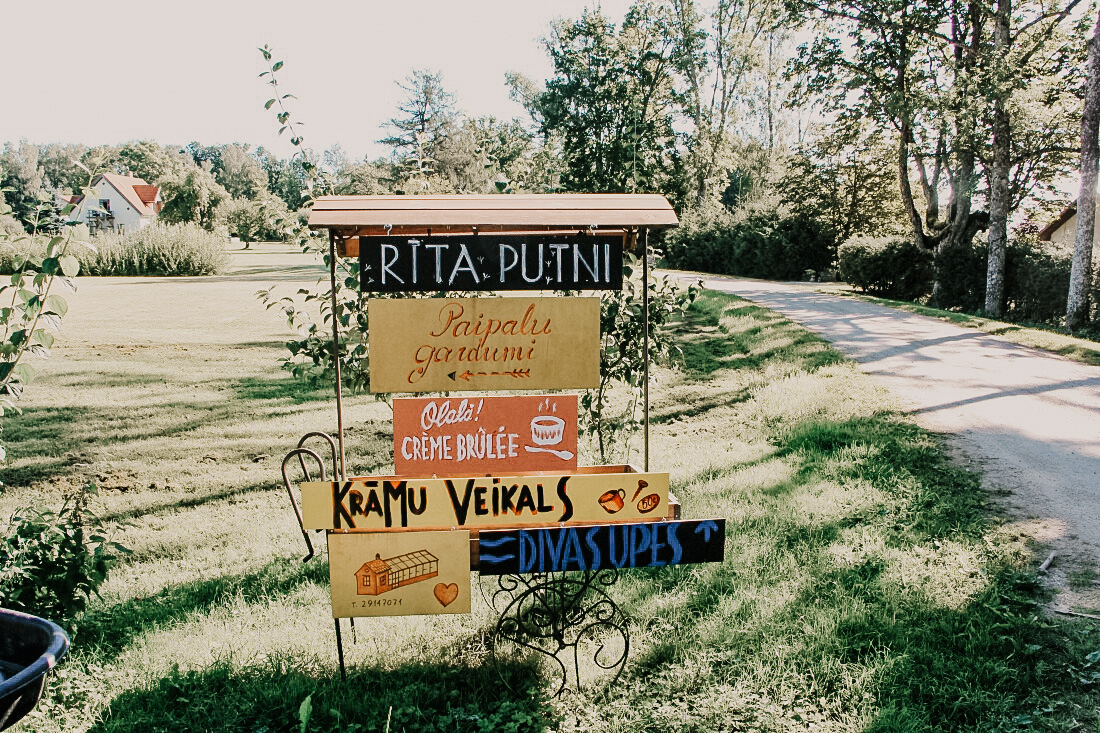 RĪTA PUTNI
Paipalu
gardumi
Olalá!
CRÈME BRÛLÉE
KRĀMU VEIKALS
DIVAS UPES
T. 29147071